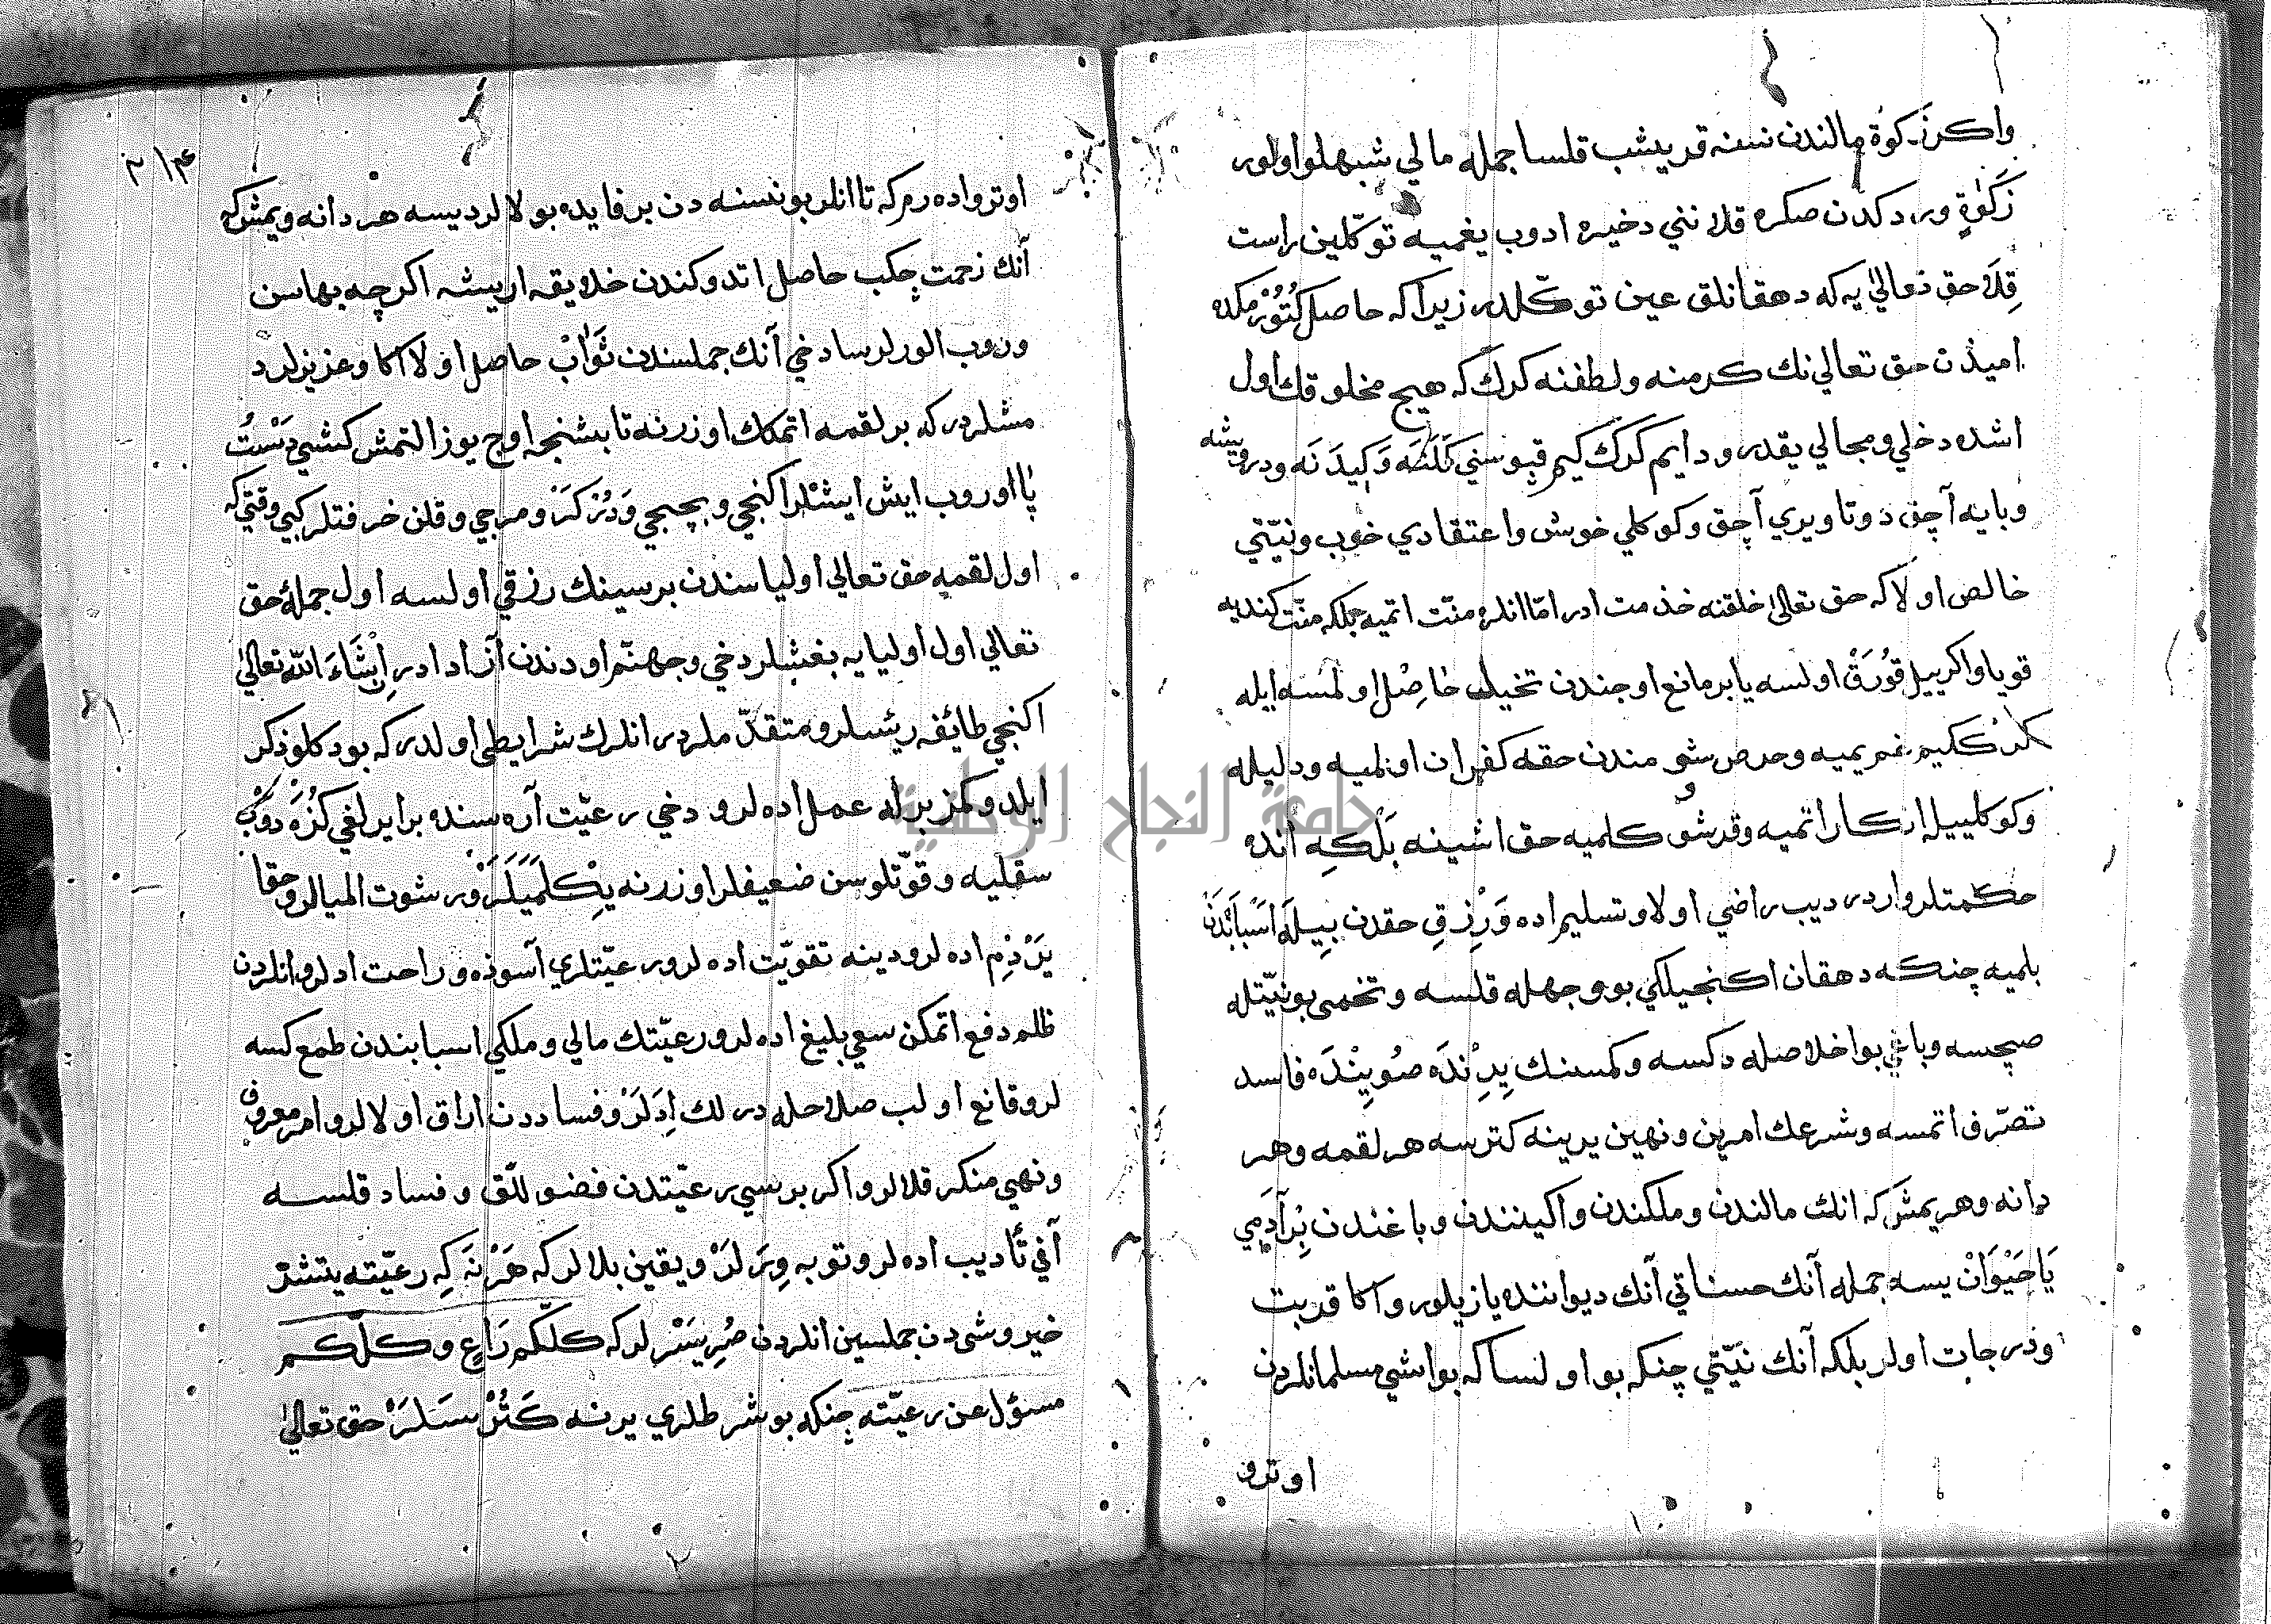 واكر زكوة مالندن نسنه قريشب قلسا جمله مالي شبهلو اولور
زكوٰةٍ وردكدن صكره قلاننني دخيره ادوب يغميه توكّلين راست
قِلَه حق تعاليٰ يه كه دهقانلق عين توكّلدر زيرا كه حاصل كُتُوُرْمكده
اميذن حق تعالي نك كرمنه ولطفنه كرك كه هيچ مخلوقك اول
اشده دخلي و مجالي يقدر ودايم كرك كيم قپوسني كَلَنَه وَكِيدَنَه ودرويشه
وبايه آچق دوتا ويري آچق وكوكلي خوش واعتقادي خوب ونيّتي
خالص اولا كه حق تعاليٰ خلقنه خذمت ادر امّا انلره منّت اتميه بلكه منّت كنديه
قويا واكر ييل قُورَقْ اولسه يا بر مانع اوجندن تخيل حاصِل اولمسه ايله
كرككيم غم يميه وحرص شومندن حقه كفران اونلميه ودليله
وكوكلييله انكار اتميه وقدرشو كلميه حق اشينه بَلْكِه انده
حكمتلر واردر ديب راضي اولا وتسليم اده وَرِزقِ حقدن بِيلَه اَسْبَابَدَنْ
بلميه چنكه دهقان اكنجيلكي بو وجهله قلسه وتخمى بو نيّتله
صچسه وباغي بو اخلاصله دكسه وكمسنك يِرِنْدَه صُويِنْدَه فاسد
تصرّف اتمسه وشرعك امرين ونهين يرينه كترسه هر لقمه وهر
دانه وهر يمش كه انك مالندن وملكندن واكينندن وباغندن بِرْآدَمِي
يَا حَيْوَانْ يسه جمله آنك حسناتي آنك ديواننده يازيلور واكا قربت
ودرجات اولر بلكه آنك نيّتي چنكه بو اولسا كه بو اشي مسلمانلردن
اوترو
٢١٤
اوترو اده رم كه تا انلر بو نسنه دن بر فايده بولالر ديسه هر دانه ويمش كه
آنك زحمت چكب حاصل اتدوكندن خلايقه اريشه اكرچه بهاسن
وروب الورلرسا دخي آنك جملسندن ثَوَابْ حاصل اولا اكا وعزيزلرد
مشلردر كه بر لقمه اتمكك اوزرنه تا بشنجه اوچ يوز التمش كشي دَسْتُ
پا اوروب ايش ايشلر اكنجي وبچيجي وَدُرزكَرْ ومرجي وقلن خرفتلر كبي وقتي كه
اول لقميه حق تعالي اولياسندن برسينك رزقي اولسه اول جمله حق
تعالي اول اوليايه بغشلر دخي وجهنّم اودندن آزاد ادر اِنْشَاءَ اللّه تعاليٰ
اكنجي طائفه رئسلر ومتقدّملردر انلرك شرايطى اولدر كه بو دكلو ذكر
ايلدوكمز برله عمل اده لر و دخي رعيّت آره سنده برابرلغي كُزَه دوب
سقليه وقوّتلوسن ضعيفلر اوزرنه يِكْلَمَيَلَرْ ورشوت الميالر وحقا
يَرْدِم اده لر ودينه تقويّت اده لر ورعيّتلري آسوذه وراحت اد لر وانلردن
ظلم دفع اتمكن سعي بليغ اده لر ورعيّتك مالي وملكي اسبابندن طمع كسه
لر وقانع اولب صلاحله درلك اِدَلَرْ وفساددن اراق اولالر وامر معروف
ونهي منكر قلالر واكر برسي رعيّتدن فضوللق وفساد قلسه
آني تأديب اده لر وتوبه وِيرَلَرْ ويقين بلالر كه هَرْ نَه كِه رعيّته يتشر
خير وشردن جملسين انلردن صُرِيسَرْ لر كه كلّكم رَاعٍ وكلّكم
مسؤل عن رعيّته چنكه بو شرطلري يرنه كَتُرْسَلَرْ حق تعاليٰ
جامعة النجاح الوطنية